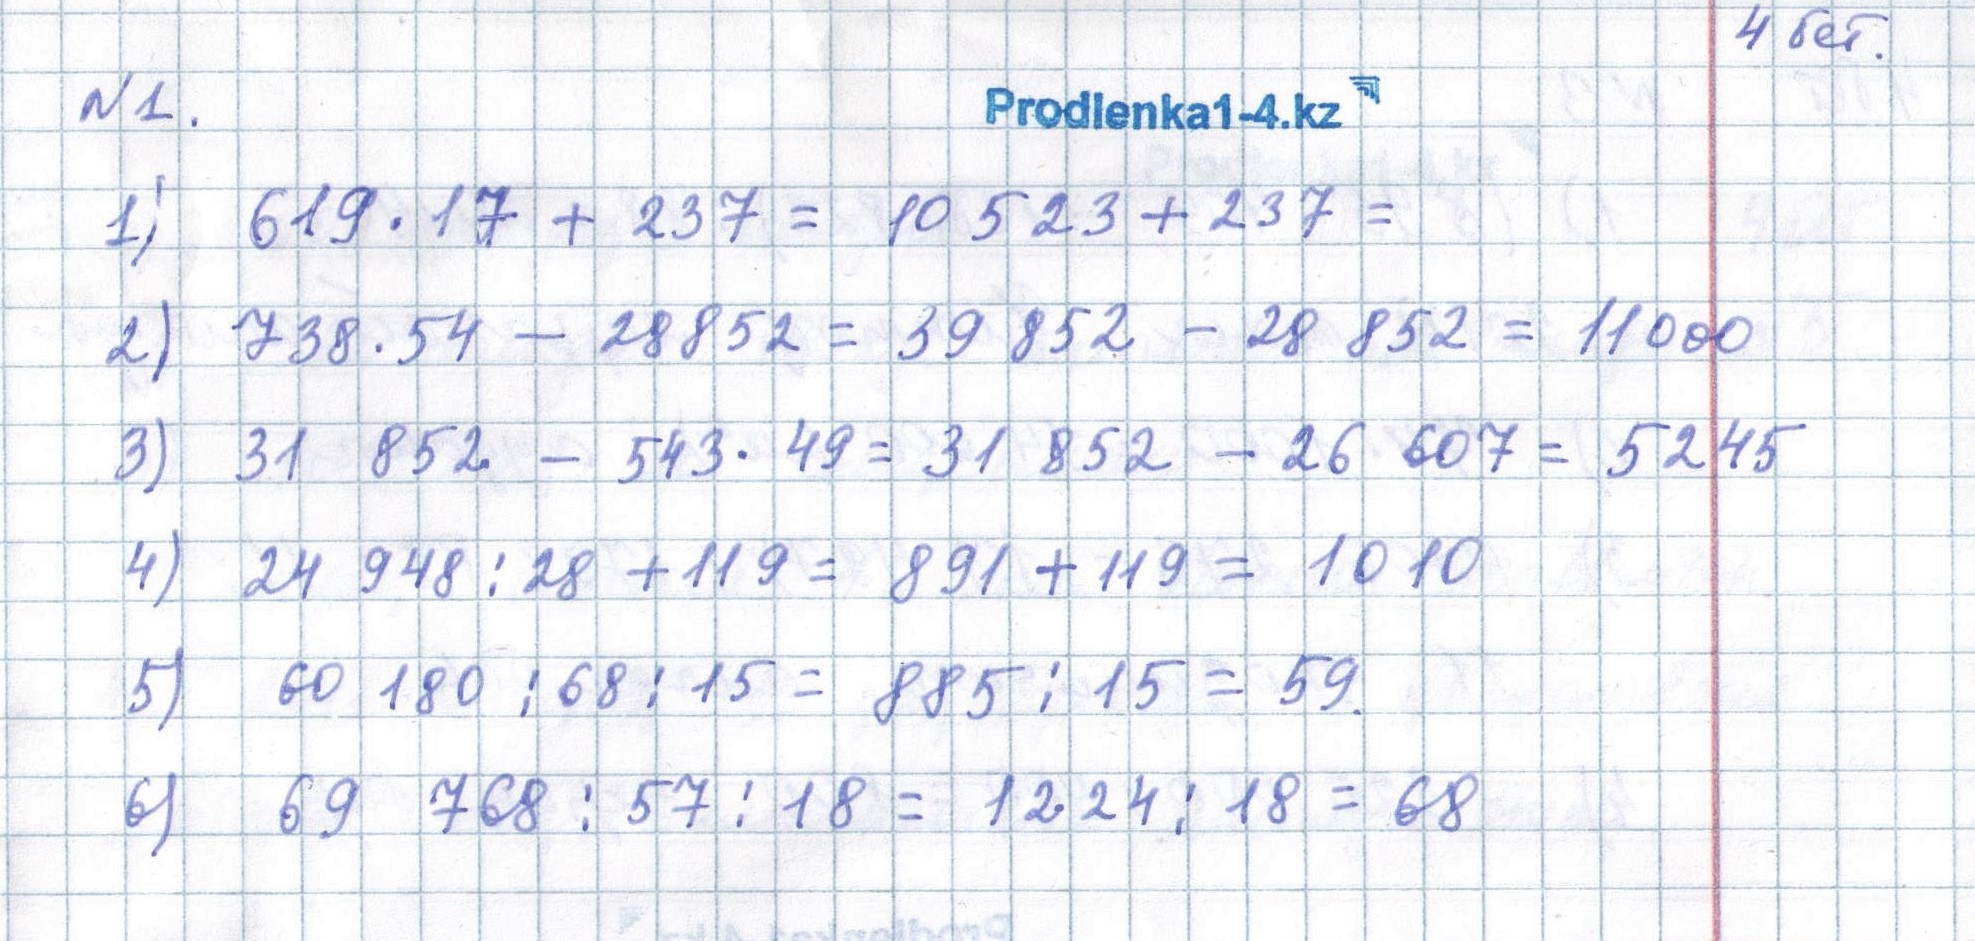 4 бет.
№1.
Prodlenka1-4.kz
1) 619·17 + 237 = 10 523 + 237 =
2) 738·54 - 28852 = 39 852 - 28 852 = 11000
3) 31 852 - 543·49 = 31 852 - 26 607 = 5245
4) 24 948 : 28 + 119 = 891 + 119 = 1010
5) 60 180 : 68 : 15 = 885 : 15 = 59.
6) 69 768 : 57 : 18 = 1224 : 18 = 68